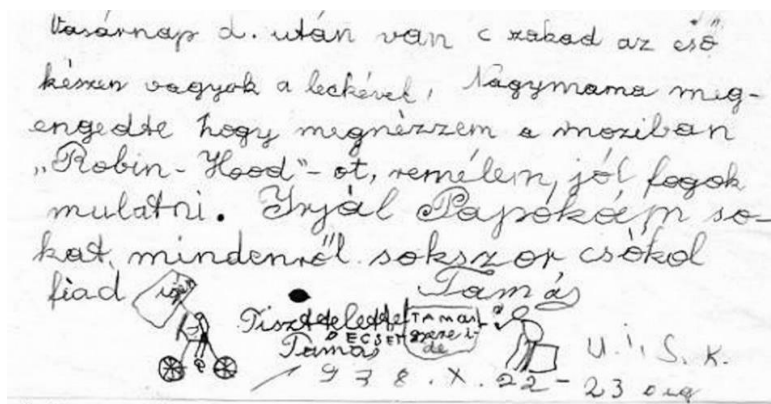 Vasárnap d. után van c szakad az eső
készen vagyok a leckével, Nagymama meg-
engedte hogy megnézzem a moziban
„Robin-Hood"-ot, remélem, jól fogok
mulatni. Irjál Papókám so-
kat, mindenről sokszor csókol
fiad Tamás
Tisztelettel
DECSEM
Tamás
TAMAS
gyere i
de
U. i, S. k.
938. X. 22-23 oig